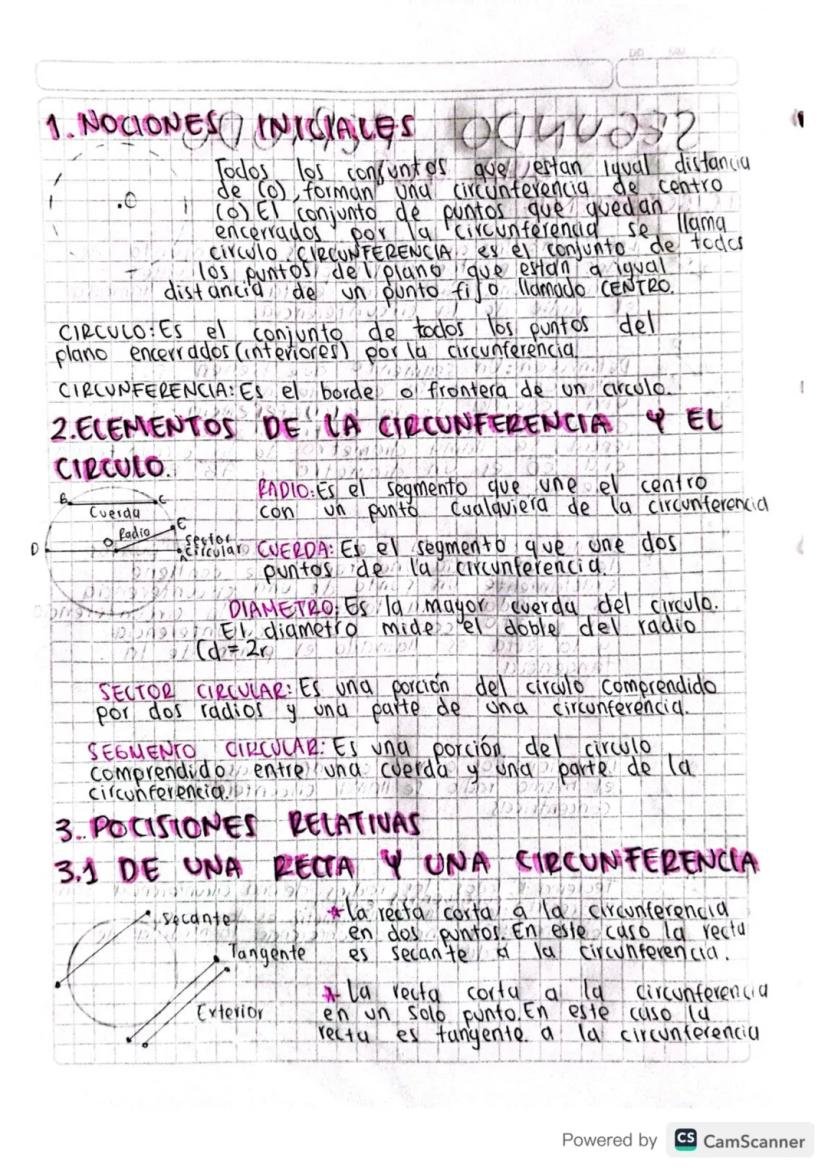 1. NOCIONES INICIALES
Todos los conjuntos que estan igual distancia
de (o), forman una circunferencia de centro
(o) El conjunto de puntos que quedan
encerrados por la circunferencia se llama
circulo CIRCUNFERENCIA es el conjunto de todos
los puntos del plano que estan a igual
distancia de un punto fijo llamado CENTRO.
.O
CIRCULO: Es el conjunto de todos los puntos del
plano encerrados (interiores) por la circunferencia
CIRCUNFERENCIA: Es el borde o frontera de un circulo.
2. ELEMENTOS DE LA CIRCUNFERENCIA Y EL
CIRCULO.
B C
Cuerda
O Radio E
D A
sector
circular
RADIO: Es el segmento que une el centro
con un punto cualquiera de la circunferencia
CUERDA: Es el segmento que une dos
puntos de la circunferencia.
DIAMETRO: Es la mayor cuerda del circulo.
El diametro mide el doble del radio
(d = 2r
SECTOR CIRCULAR: Es una porción del circulo comprendido
por dos radios y una parte de una circunferencia.
SEGMENTO CIRCULAR: Es una porción del circulo
comprendido entre una cuerda y una parte de la
circunferencia.
3. POCISIONES RELATIVAS
3.1 DE UNA RECTA Y UNA CIRCUNFERENCIA
secante
Tangente
Exterior
* La recta corta a la circunferencia
en dos puntos. En este caso la recta
es secante a la circunferencia.
* La recta corta a la circunferencia
en un solo punto. En este caso la
recta es tangente a la circunferencia
Powered by CS CamScanner